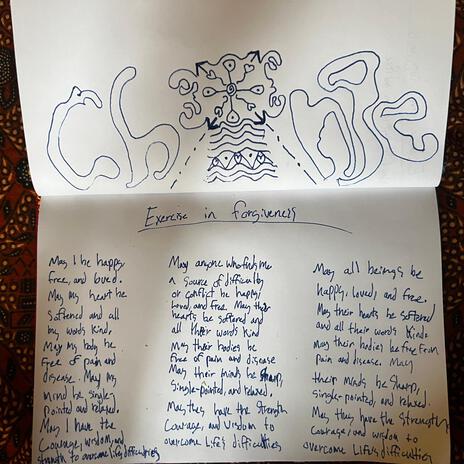 Change
Exercise in forgiveness
May I be happy,
free, and loved.
May my heart be
softened and all
my words kind.
May my body be
free of pain and
disease. May my
mind be single-
pointed and relaxed.
May I have the
Courage, wisdom, and
strength to overcome life's difficulties
May anyone who finds me
a source of difficulty
or conflict be happy,
loved, and free. May their
hearts be softened and
all their words kind
May their bodies be
free of pain and disease
May their minds be sharp,
single-pointed, and relaxed.
May they have the strength
Courage, and wisdom to
overcome life's difficulties
May all beings be
happy, loved, and free.
May their hearts be softened
and all their words kind
May their bodies be free from
pain and disease. May
their minds be sharp,
single-pointed, and relaxed.
May they have the strength
Courage, and wisdom to
overcome life's difficulties